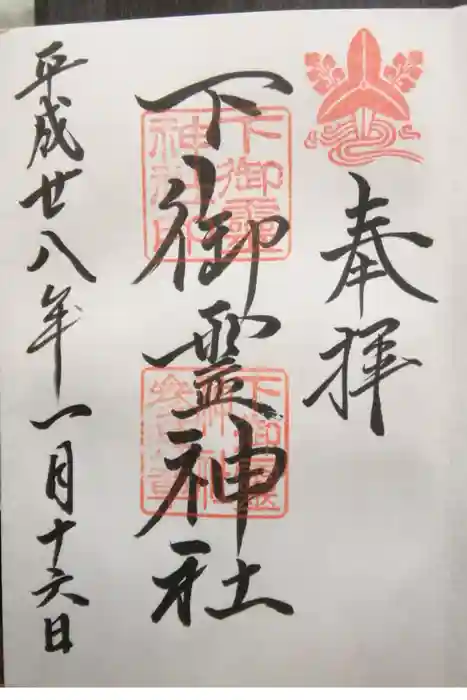 奉拝
下御霊神社
下御霊神社印
下御霊神社
平成廿八年一月十六日